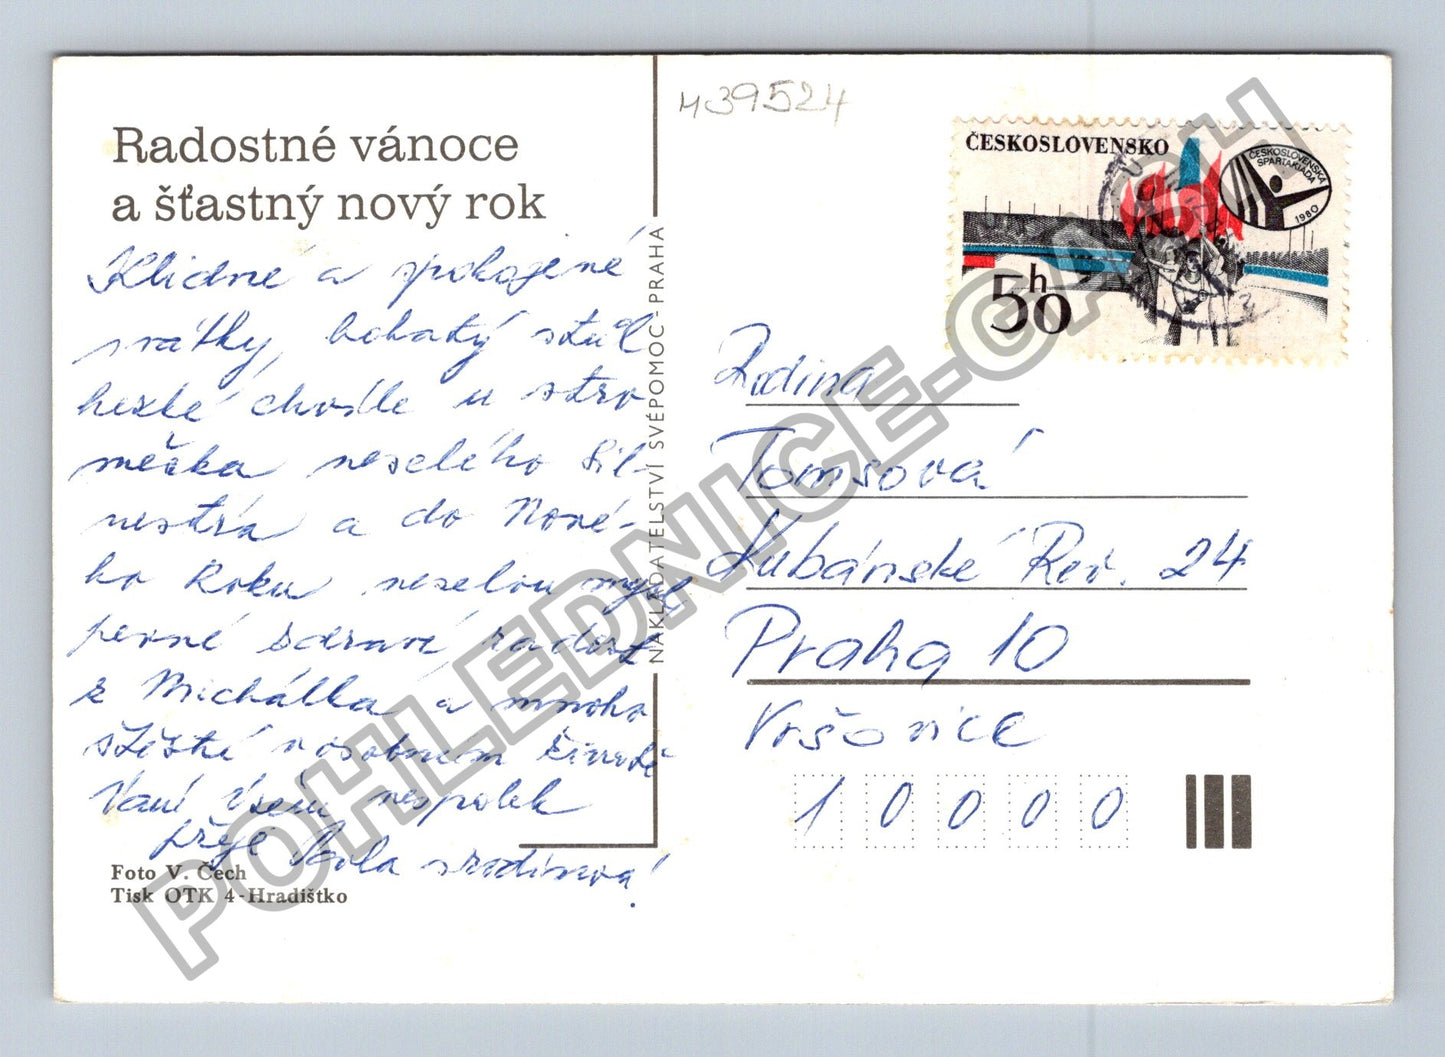 Radostné vánoce
a šťastný nový rok
Klidné a spokojené
svátky, bohatý stůl
hezké chvíle u stro
mečka veselého Sil-
vestra a do Nové-
ho Roku veselou mysl
pevné zdraví radost
z Michálka a mnoho
štěstí v osobním životě
Vám Všem nespolek
přeje
Foto V. Čech
Tisk OTK 4-Hradištko
NAKLADATELSTVÍ SVÉPOMOC-PRAHA
439524
ČESKOSLOVENSKO
ČESKOSLOVENSKÁ
SPARTAKIÁDA
1980
50h
Rodina
Tomsová
Kubánské Rev. 24
Praha 10
Vršovice
10000
POHLEDNICE-CASH